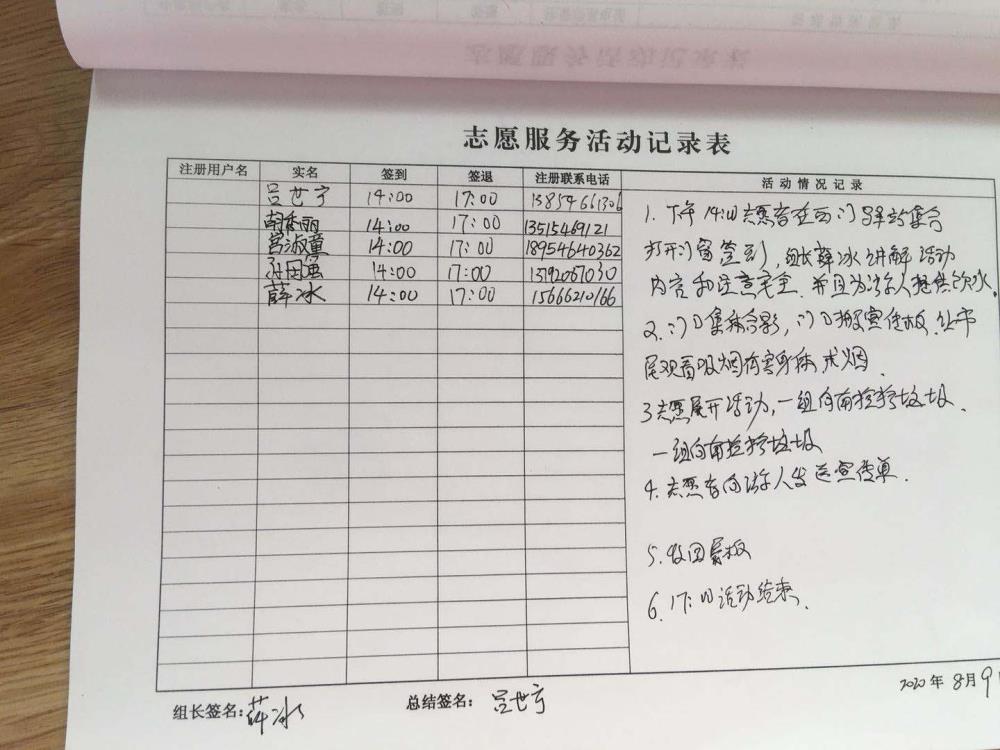 志愿服务活动记录表
注册用户名 实名 签到 签退 注册联系电话 活动情况记录
吕世亨 14:00 17:00 13854661306
胡秀丽 14:00 17:00 13515469121
宫淑童 14:00 17:00 18954640362
14:00 17:00
薛冰 14:00 17:00 15666210166
1. 下午14:00志愿者在西门驿站集合
打开门窗签到, 组长薛冰讲解活动
内容和注意安全. 并且为游人提供饮水.
2. 门口集体合影, 门口搬宣传板. 让市
民观看吸烟有害身体 戒烟.
3 志愿展开活动, 一组向南捡拾垃圾.
一组向南捡拾垃圾
4. 志愿者向游人发送宣传单.
5. 收回展板
6. 17:00活动结束.
组长签名: 薛冰 总结签名: 吕世亨 2020年8月9